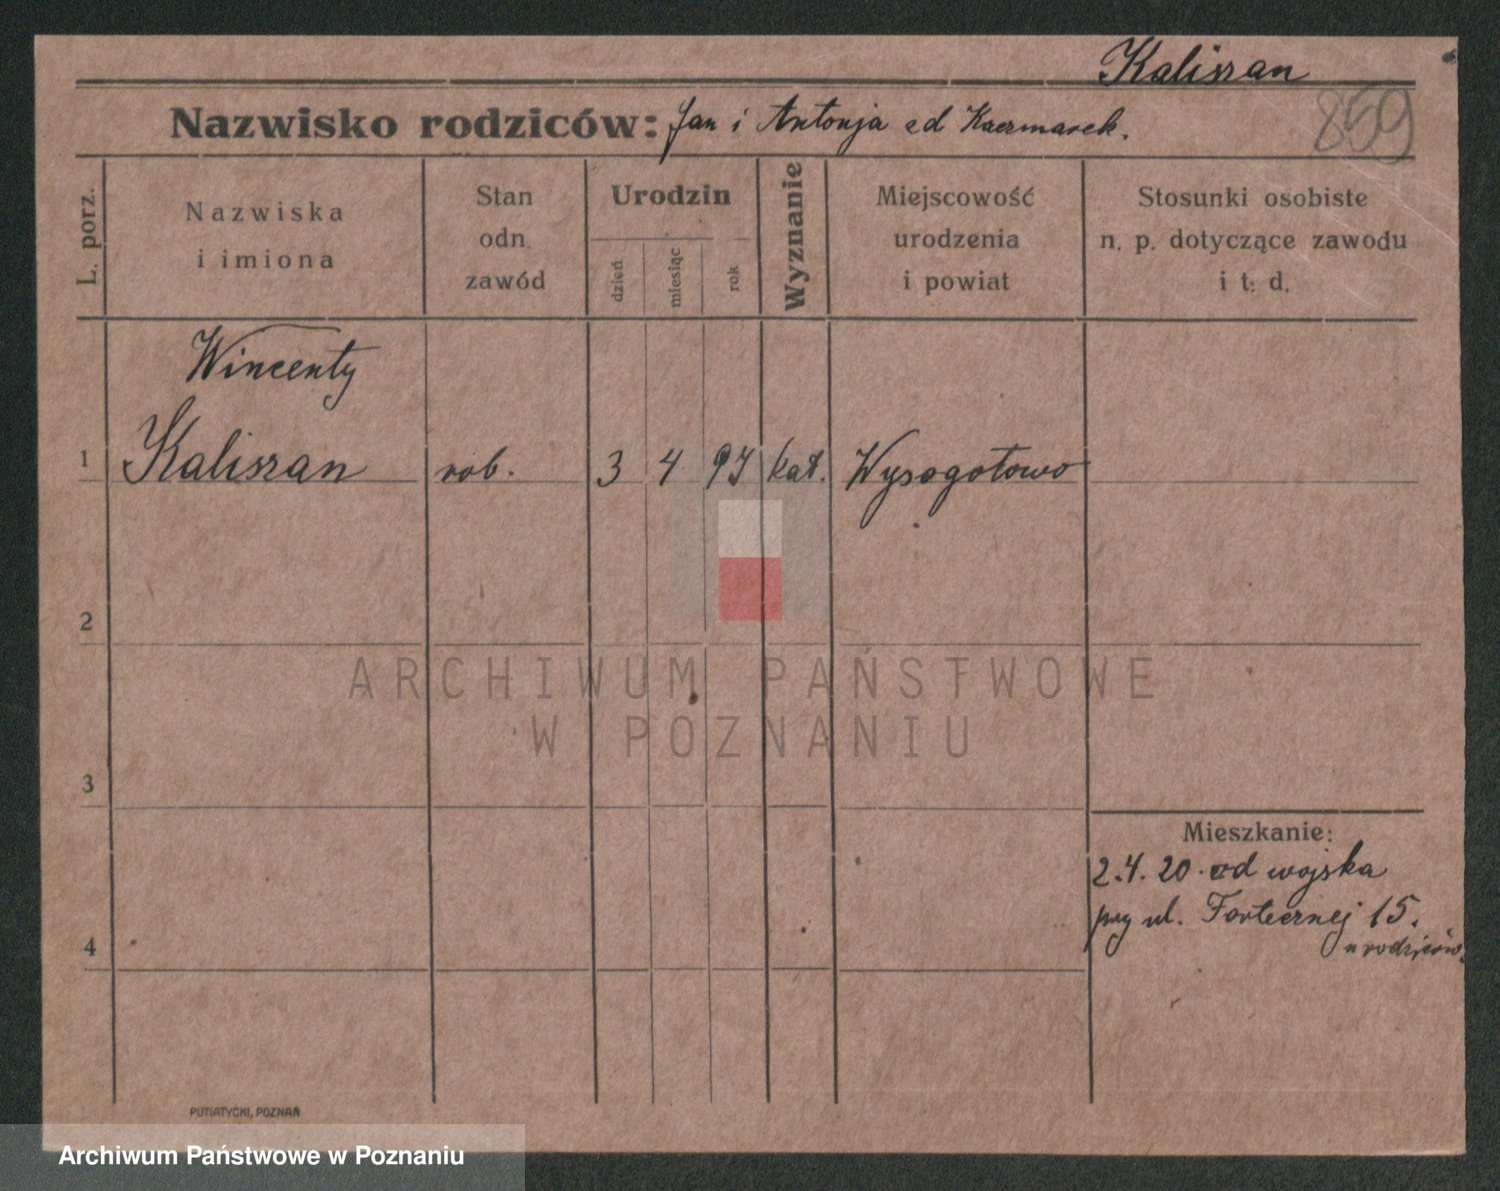 Kaliszan
859
Nazwisko rodziców: Jan i Antonja od Kaczmarek.
L. porz.
Nazwiska
i imiona
Stan
odn.
zawód
Urodzin
dzień
miesiąc
rok
Wyznanie
Miejscowość
urodzenia
i powiat
Stosunki osobiste
n. p. dotyczące zawodu
i t. d.
Wincenty
1 Kaliszan rob. 3 4 97 kat. Wysogotowo
2
ARCHIWUM PAŃSTWOWE
W POZNANIU
3
Mieszkanie:
2.4.20 od wojska
przy ul. Fortecznej 15.
u rodziców.
4
PUTIATYCKI, POZNAŃ
Archiwum Państwowe w Poznaniu